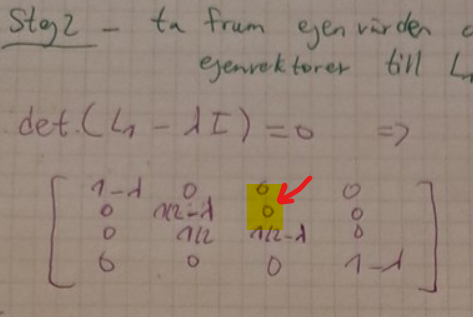 Steg 2 - ta fram egenvärden o
egenvektorer till L
det.(L₁ - λI) = 0 =>
1-λ 0 0 0
0 1/2-λ 0 0
0 1/2 1/2-λ 0
0 0 0 1-λ